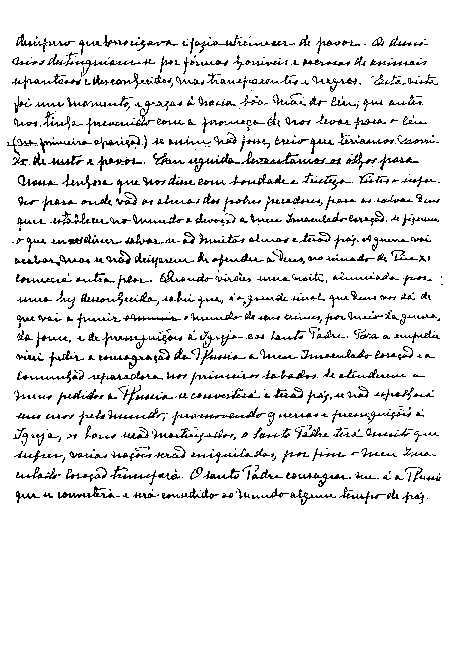 desespero que horrorizava e fazia estremecer de pavor. Os demo-
nios destinguiam-se por formas horriveis e ascrosas de animais
espantosos e desconhecidos, mas transparentes e negros. Esta vista
foi um momento, e graças à nossa bôa Mãe do Céu; que antes
nos tinha prevenido com a promeça de nos levar para o Céu
(na primeira aparição) se assim não fosse, creio que teriamos morri-
do de susto e pavor. Em seguida, levantámos os olhos para
Nossa Senhora que nos disse com bondade e tristeza. Vistes o infer-
no para onde vão as almas dos pobres pecadores, para as salvar Deus
quer establecer no mundo a devoçã a meu Imaculado Coração. se fizerem
o que eu vos diser salvar-se-ão muitas almas e terão paz. A guerra vai
acabar, mas se não deixarem de ofender a Deus, no reinado de Pio XI
começará outra peor. Quando virdes uma noite, alumiada por
uma luz desconhecida, sabei que, é o grande sinal que Deus vos dá de
que vai a punir o mundo de seus crimes, por meio da guerra,
da fome, e de perseguições à Igreja e ao Santo Padre. Para a impedir
virei pedir a consagração da Russia a meu Imaculado Coração e a
Comunhão reparadora nos primeiros sabados. se atenderem a
meus pedidos a Russia se converterá e terão paz, se não espalhará
seus erros pelo mundo, promovendo guerras e perseguições á
Igreja, os bons serão martirizados, o Santo Padre terá muito que
sufrer, varias nações serão aniquiladas, por fim o meu Ima-
culado Coração triunfará. O Santo Padre consagrar-me-á a Russia
que se converterá e será consedido ao mundo algum tempo de paz.